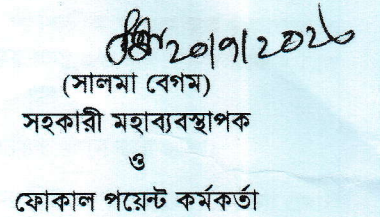 20/9/2020
(সালমা বেগম)
সহকারী মহাব্যবস্থাপক
ও
ফোকাল পয়েন্ট কর্মকর্তা